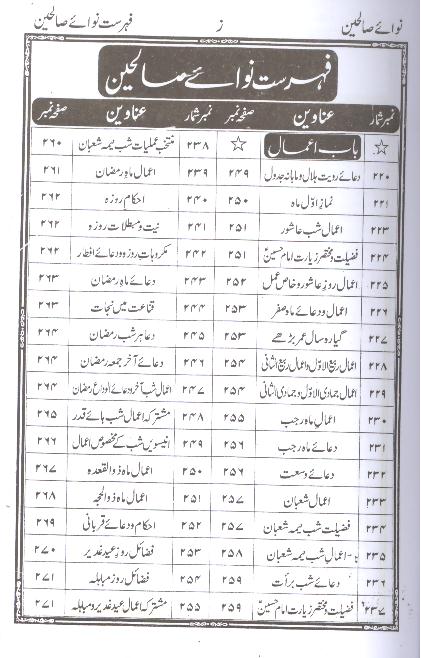 نوائے صالحین ز فہرست نوائے صالحین
فہرست نوائے صالحین
نمبر شمار عناوین صفحہ نمبر نمبر شمار عناوین صفحہ نمبر
☆ باب اعمال ☆ ۲۳۸ منتخب عملیات شب نیمہ شعبان ۲۶۰
۲۲۰ دعائے رویت ہلال و ماہانہ جدول ۲۴۹ ۲۳۹ اعمال ماہ رمضان ۲۶۱
۲۲۱ نماز اوّل ماہ ۲۵۰ ۲۴۰ احکام روزہ ۲۶۲
۲۲۳ اعمال شب عاشور ۲۵۱ ۲۴۱ نیت و مبطلات روزہ ۲۶۲
۲۲۴ فضیلت و مختصر زیارت امام حسینؑ ۲۵۱ ۲۴۲ مکروہات روزہ و دعائے افطار ۲۶۲
۲۲۵ اعمال روز عاشور و خاص عمل ۲۵۲ ۲۴۳ دعائے ماہ رمضان ۲۶۳
۲۲۶ اعمال و دعائے ماہ صفر ۲۵۳ ۲۴۴ قناعت میں نجات ۲۶۳
۲۲۷ گیارہ سال عمر بڑھے ۲۵۳ ۲۴۵ دعا ہر شب رمضان ۲۶۴
۲۲۸ اعمال ربیع الاوّل و اعمال ربیع الثانی ۲۵۴ ۲۴۶ دعائے آخر جمعہ رمضان ۲۶۴
۲۲۹ اعمال جمادی الاوّل و جمادی الثانی ۲۵۴ ۲۴۷ اعمال شب آخر و دعائے الوداع رمضان ۲۶۴
۲۳۰ اعمال ماہ رجب ۲۵۵ ۲۴۸ مشترکہ اعمال شب ہائے قدر ۲۶۵
۲۳۱ دعائے ماہ رجب ۲۵۶ ۲۴۹ انیسویں شب کے مخصوص اعمال ۲۶۶
۲۳۲ دعائے وسعت ۲۵۶ ۲۵۰ اعمال ماہ ذوالقعدہ ۲۶۷
۲۳۳ اعمال شعبان ۲۵۷ ۲۵۱ اعمال ماہ ذوالحجہ ۲۶۸
۲۳۴ فضیلت شب نیمہ شعبان ۲۵۷ ۲۵۲ احکام و دعائے قربانی ۲۶۹
۲۳۵ اعمال شب نیمہ شعبان ۲۵۸ ۲۵۳ فضائل روز عید غدیر ۲۷۰
۲۳۶ دعائے شب برأت ۲۵۹ ۲۵۴ فضائل روز مباہلہ ۲۷۱
۲۳۷ فضیلت و مختصر زیارت امام حسینؑ ۲۵۹ ۲۵۵ مشترکہ اعمال عید غدیر و مباہلہ ۲۷۱